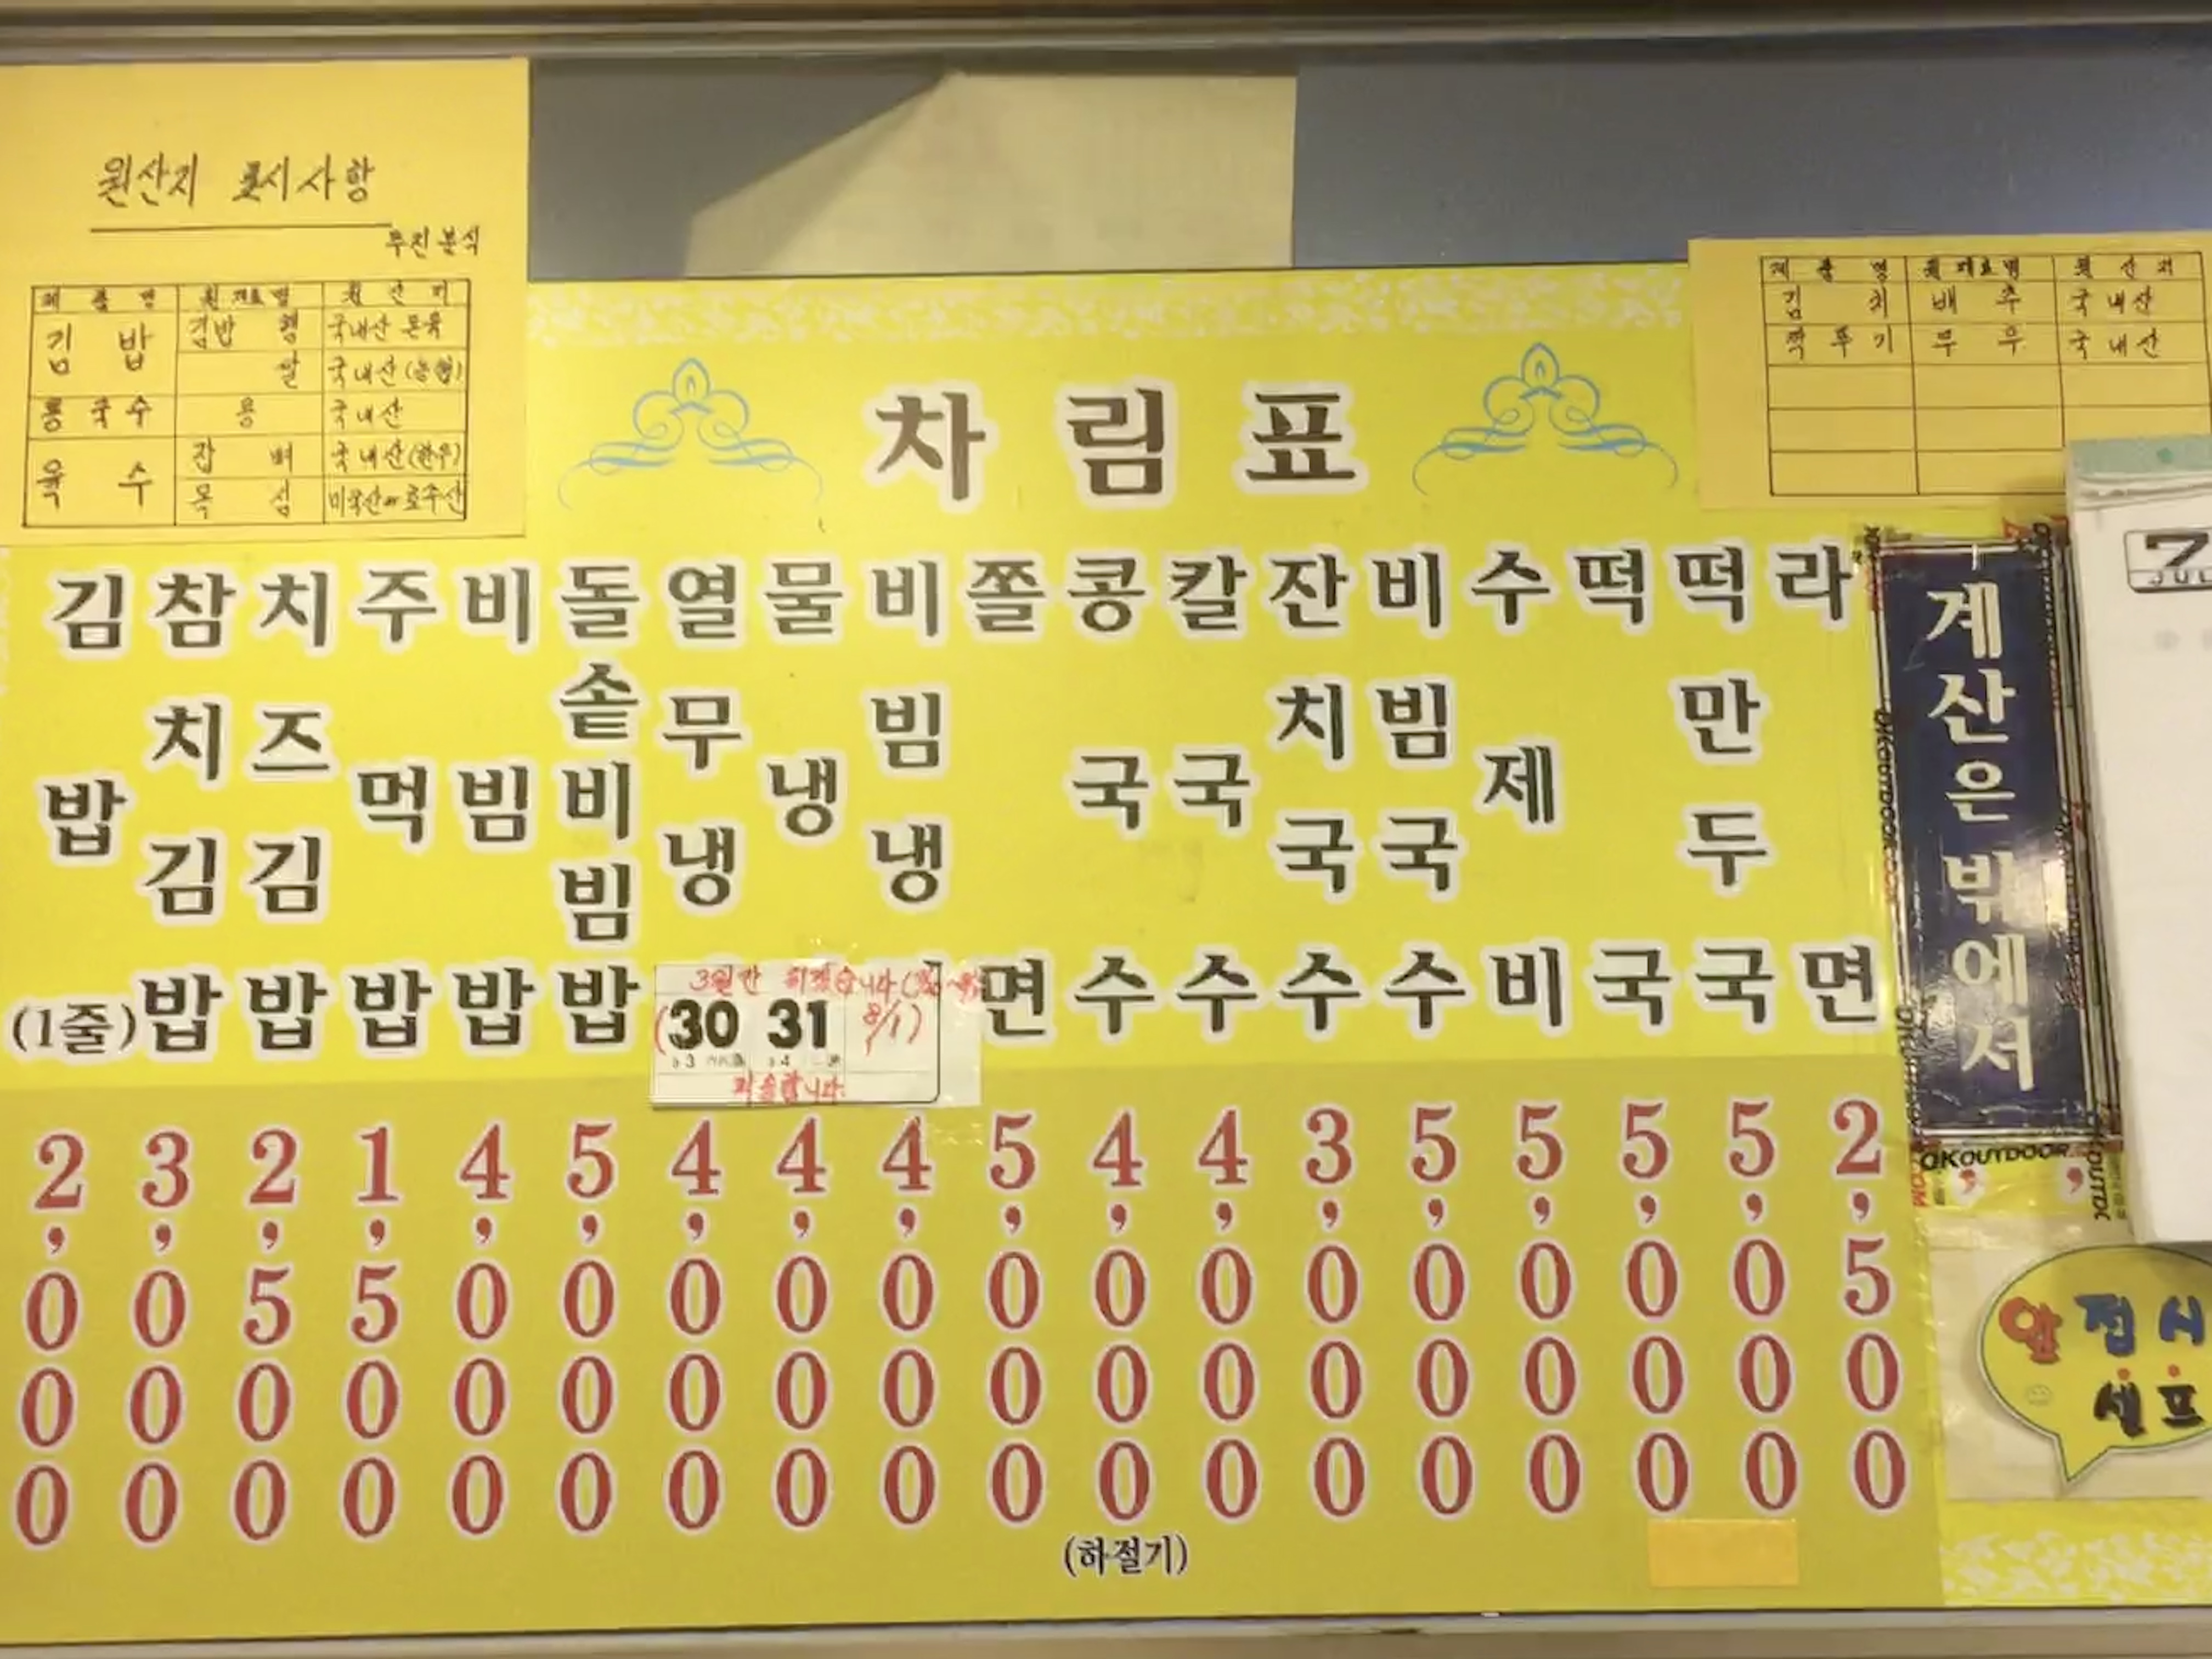 원산지 표시사항
두진분식
제품명 원재료명 원산지
김밥 김밥햄 국내산 돈육
쌀 국내산(농협)
콩국수 콩 국내산
육수 잡뼈 국내산(한우)
목심 미국산 호주산
제품명 원재료명 원산지
김치 배추 국내산
깍두기 무우 국내산
차림표
김밥(1줄) 2,000
참치김밥 3,000
치즈김밥 2,500
주먹밥 1,500
비빔밥 4,000
돌솥비빔밥 5,000
열무냉 4,000
물냉 4,000
비빔냉 4,000
쫄면 5,000
콩국수 4,000 (하절기)
칼국수 4,000
잔치국수 3,000
비빔국수 5,000
수제비 5,000
떡국 5,000
떡만두국 5,000
라면 2,500
3일간 쉬겠습니다
(30 31 8/1)
죄송합니다
계산은 밖에서
OKOUTDOOR
7
JUL
앞접시
셀프